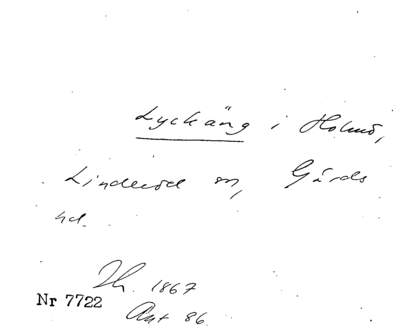 Lyckäng i Holmö,
Linderöd sn, Gärds
hd.
Th. 1867
Nr 7722
Ant 86.